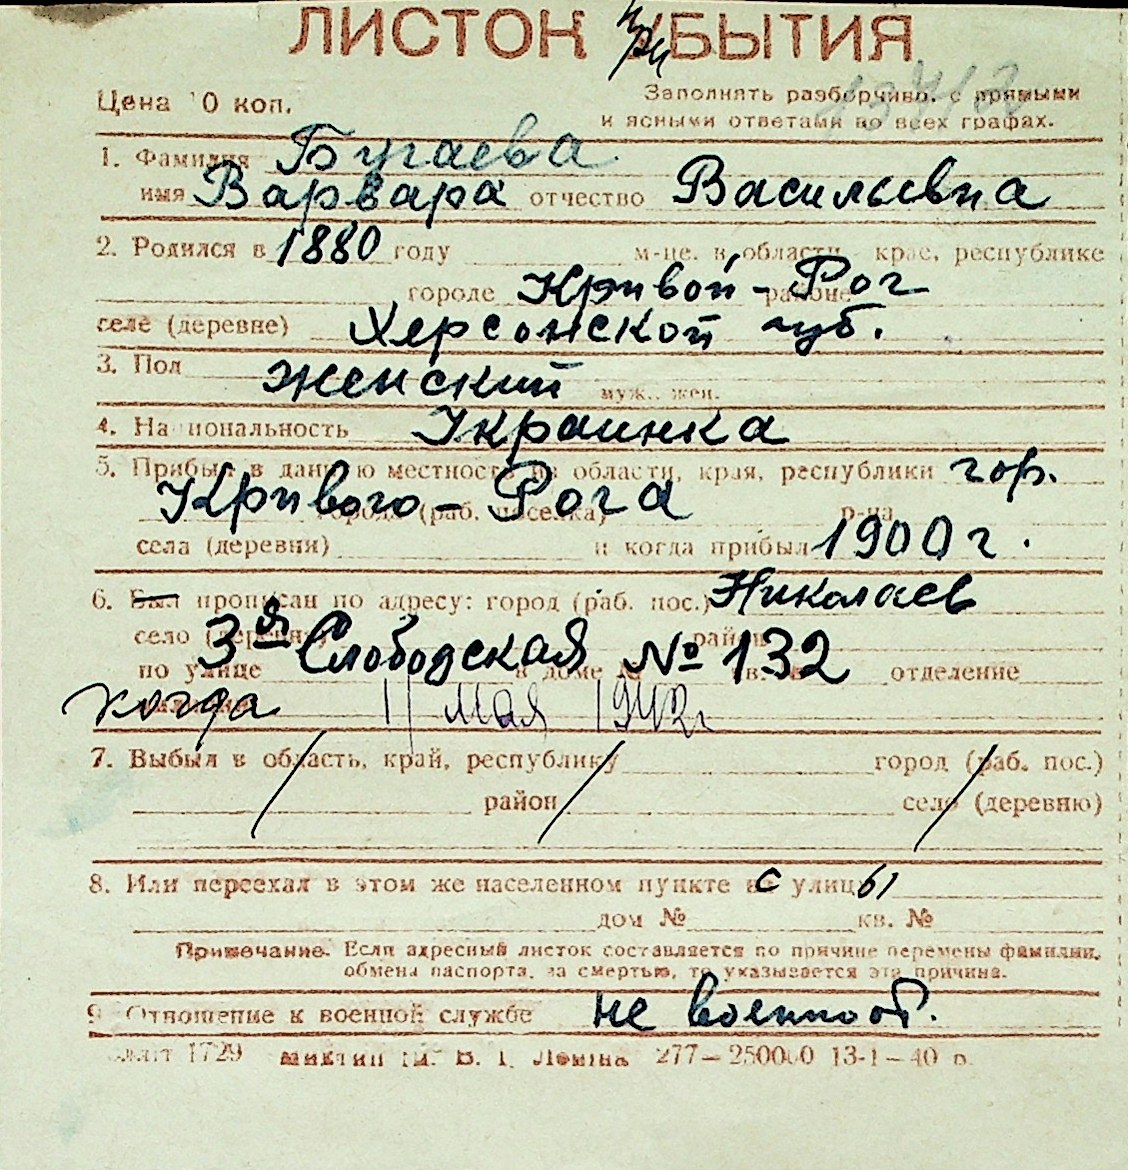 ЛИСТОК при УБЫТИЯ
Цена 10 коп.
Заполнять разборчиво, с прямыми
и ясными ответами во всех графах.
1. Фамилия Бугаева
имя Варвара отчество Васильевна
2. Родился в 1880 году м-це. в области, крае, республике
городе Кривой-Рог районе
селе (деревне) Херсонской губ.
3. Пол женский муж., жен.
4. Национальность Украинка
5. Прибыл в данную местность из области, края, республики гор.
Кривого-Рога города (раб. поселка) р-на
села (деревни) и когда прибыл 1900 г.
6. Был прописан по адресу: город (раб. пос.) Николаев
село (деревне) район
по улице 3я Слободская в доме № 132 кв. отделение
когда 11 мая 1942 г
7. Выбыл в область, край, республику город (раб. пос.)
район село (деревню)
8. Или переехал в этом же населенном пункте с улицы
дом № кв. №
Примечание. Если адресный листок составляется по причине перемены фамилии,
обмена паспорта, за смертью, то указывается эта причина.
9. Отношение к военной службе не военнооб.
1729 В. И. Ленина 277—250000 13-1—40 г.